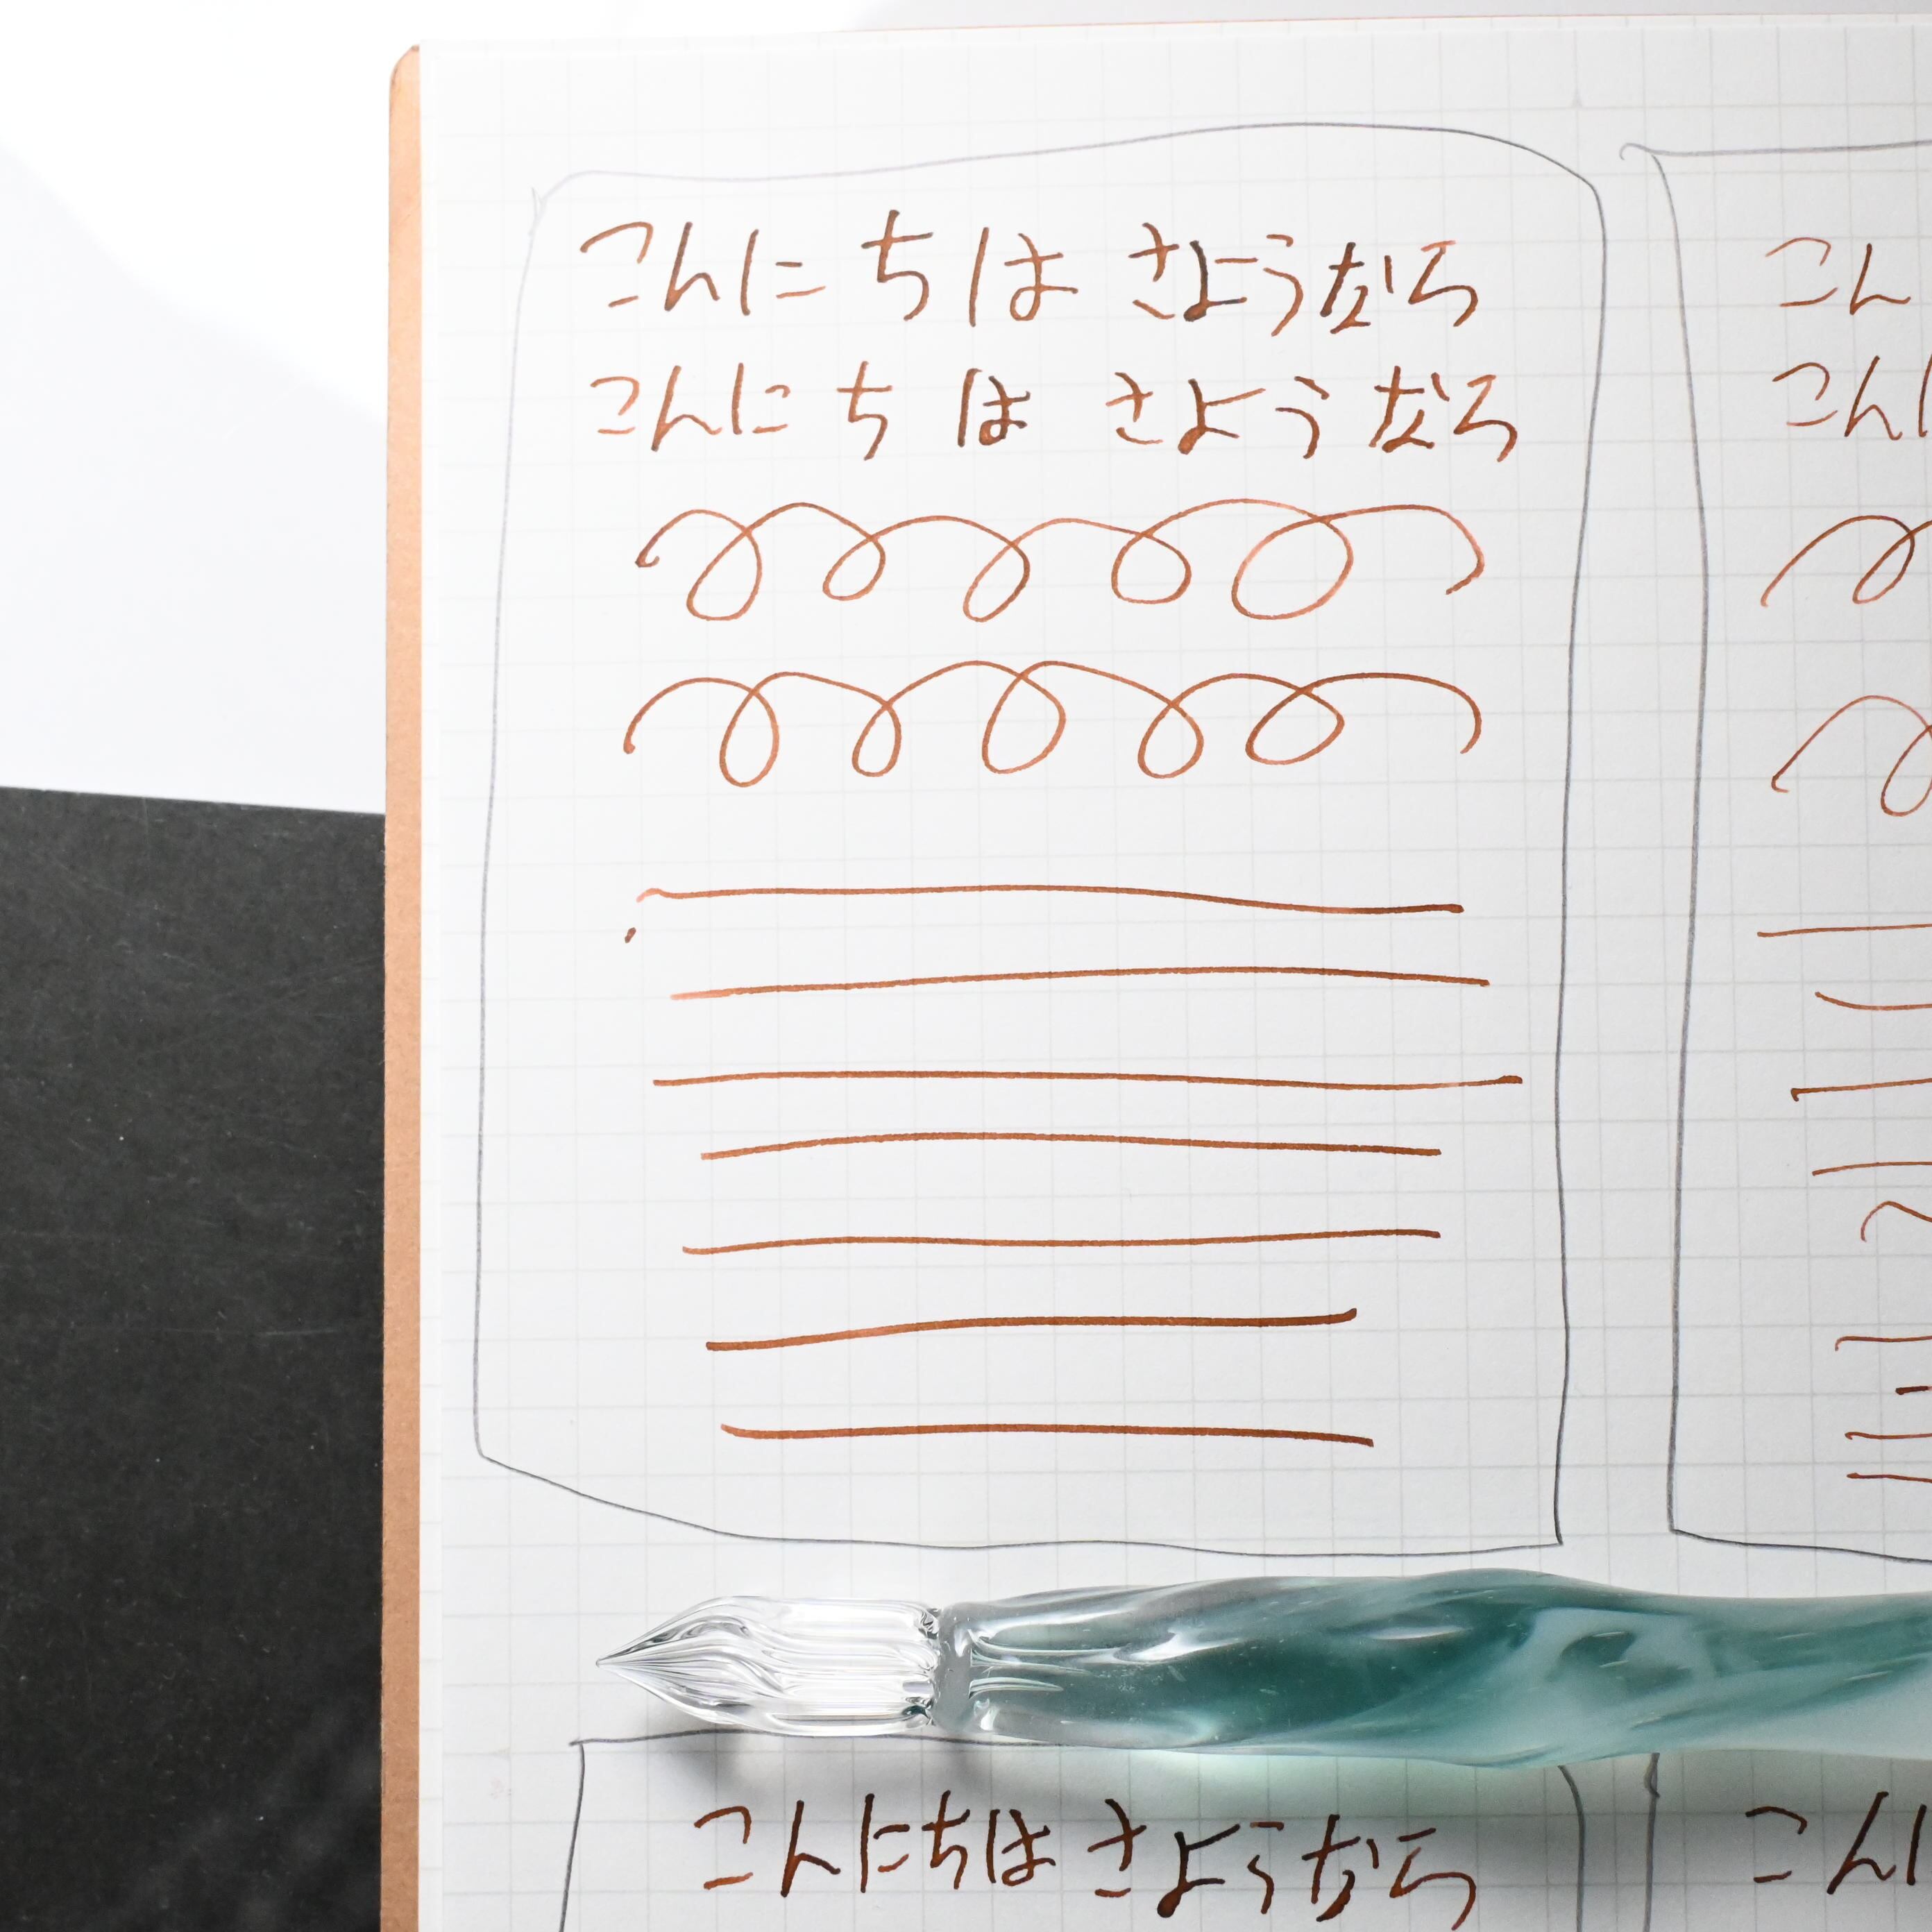 こんにちは さようなら
こんにちは さようなら
こん
こんに
こんにちは さようなら
こんに